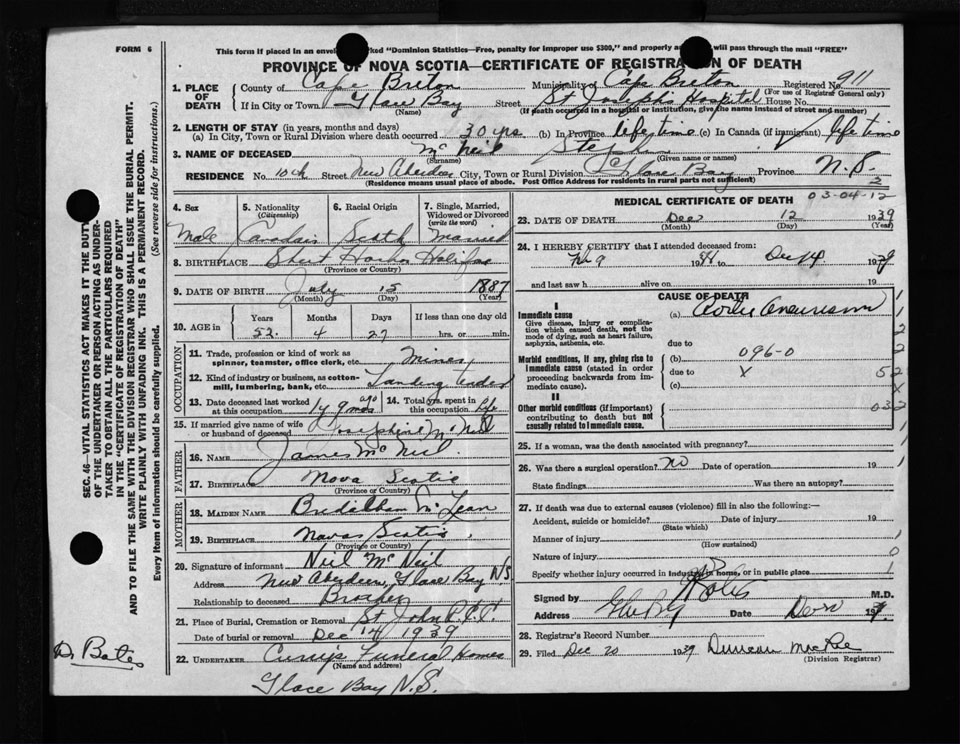 FORM 6
This form if placed in an envel ked "Dominion Statistics—Free, penalty for improper use $300," and properly a will pass through the mail "FREE"
PROVINCE OF NOVA SCOTIA—CERTIFICATE OF REGISTRATION OF DEATH
1. PLACE OF DEATH
County of Cape Breton Municipality of Cape Breton Registered No. 911
(For use of Registrar General only)
If in City or Town Glace Bay Street St Josephs Hospital House No.
(Name) (If death occurred in a hospital or institution, give the name instead of street and number)
2. LENGTH OF STAY (in years, months and days)
(a) In City, Town or Rural Division where death occurred 30 yrs (b) In Province life time (c) In Canada (if immigrant) life time
3. NAME OF DECEASED McNeil Stephen
(Surname) (Given name or names)
RESIDENCE No. 10th Street New Aberdeen City, Town or Rural Division Glace Bay Province N.S
(Residence means usual place of abode. Post Office Address for residents in rural parts not sufficient)
4. Sex 5. Nationality (Citizenship) 6. Racial Origin 7. Single, Married, Widowed or Divorced (write the word)
Male Canadian Scotch Married
8. BIRTHPLACE Harbor Halifax
(Province or Country)
9. DATE OF BIRTH July 15 1887
(Month) (Day) (Year)
10. AGE in Years Months Days If less than one day
52 4 27 hrs. or min.
OCCUPATION
11. Trade, profession or kind of work as spinner, teamster, office clerk, etc. Mines
12. Kind of industry or business, as cotton-mill, lumbering, bank, etc. Landing Tender
13. Date deceased last worked at this occupation 1y 9mos ago 14. Total yrs. spent in this occupation life
15. If married give name of wife or husband of deceased Josephine McNeil
FATHER
16. NAME James McNeil
17. BIRTHPLACE Nova Scotia
(Province or Country)
MOTHER
18. MAIDEN NAME McLean
19. BIRTHPLACE Nova Scotia
(Province or Country)
20. Signature of informant Neil McNeil
Address New Aberdeen, Glace Bay NS
Relationship to deceased Brother
21. Place of Burial, Cremation or Removal St John
Date of burial or removal Dec 14 1939
22. UNDERTAKER Curry's Funeral Homes
(Name and address)
Glace Bay N.S.
MEDICAL CERTIFICATE OF DEATH 03-04-12
2
23. DATE OF DEATH Dec 12 1939
(Month) (Day) (Year)
24. I HEREBY CERTIFY that I attended deceased from:
Feb 9 19 to Dec 14 1939
and last saw h alive on 19
CAUSE OF DEATH
I
Immediate cause
Give disease, injury or complication which caused death, not the mode of dying, such as heart failure, asphyxia, asthenia, etc.
(a) Aortic Aneurism
due to
Morbid conditions, if any, giving rise to immediate cause (stated in order proceeding backwards from immediate cause).
(b) 096-0
due to X
(c)
II
Other morbid conditions (if important) contributing to death but not causally related to immediate cause.
1
2
2
52
X
032
25. If a woman, was the death associated with pregnancy? 1
26. Was there a surgical operation? no Date of operation 19 1
State findings Was there an autopsy?
27. If death was due to external causes (violence) fill in also the following:—
Accident, suicide or homicide? Date of injury 19
(State which)
Manner of injury 1
(How sustained)
Nature of injury 0
Specify whether injury occurred in industry, in home, or in public place 1
Signed by M.D.
Address Date 19
28. Registrar's Record Number
29. Filed Dec 20 1939 Duncan MacRae
(Division Registrar)
SEC. 46—VITAL STATISTICS ACT MAKES IT THE DUTY
OF THE UNDERTAKER OR PERSON ACTING AS UNDER-
TAKER TO OBTAIN ALL THE PARTICULARS REQUIRED
IN THE "CERTIFICATE OF REGISTRATION OF DEATH"
AND TO FILE THE SAME WITH THE DIVISION REGISTRAR WHO SHALL ISSUE THE BURIAL PERMIT.
WRITE PLAINLY WITH UNFADING INK. THIS IS A PERMANENT RECORD.
Every item of information should be carefully supplied.
(See reverse side for instructions.)
Dr Bates